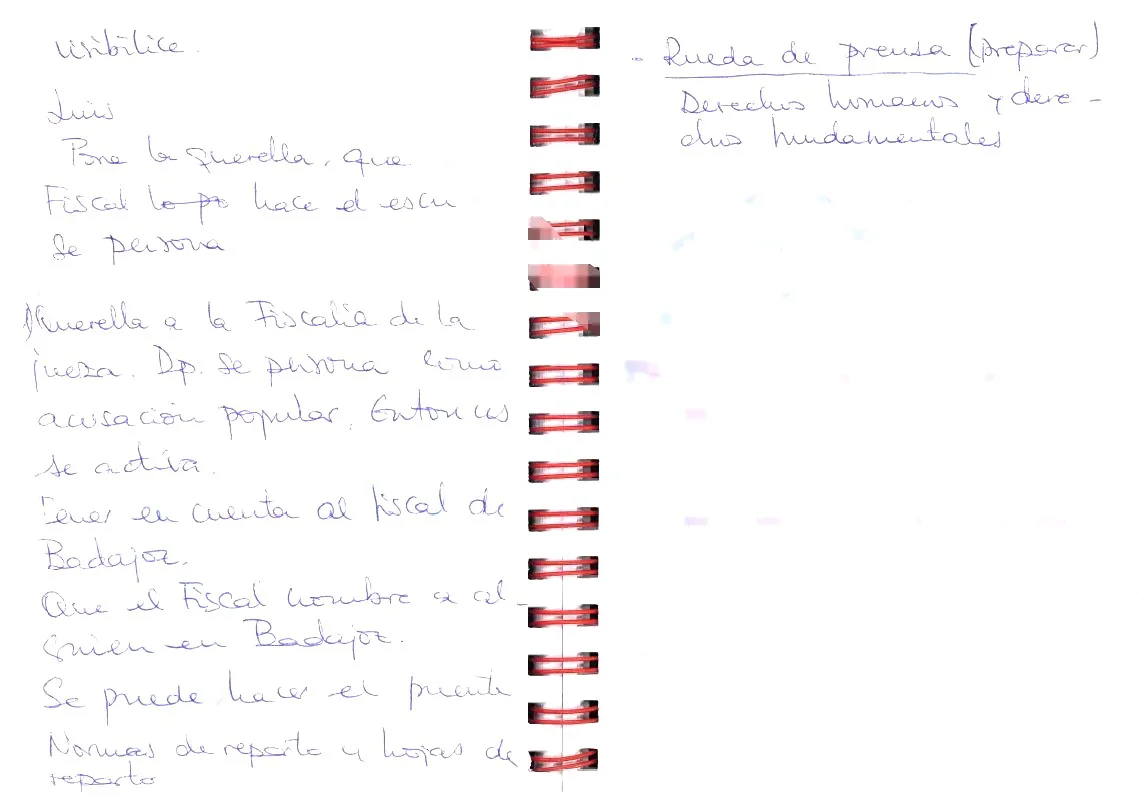 visibilice.
Luis
Pone la querella, que
Fiscal lo po hace el escu
Se persona
Querella a la Fiscalía de la
jueza. Dp. se persona como
acusación popular. Entonces
se activa.
Tener en cuenta al fiscal de
Badajoz.
Que el Fiscal nombre a al-
guien en Badajoz.
Se puede hacer el puente
Normas de reparto y hojas de
reparto
- Rueda de prensa (preparar)
Derechos humanos y dere-
chos fundamentales